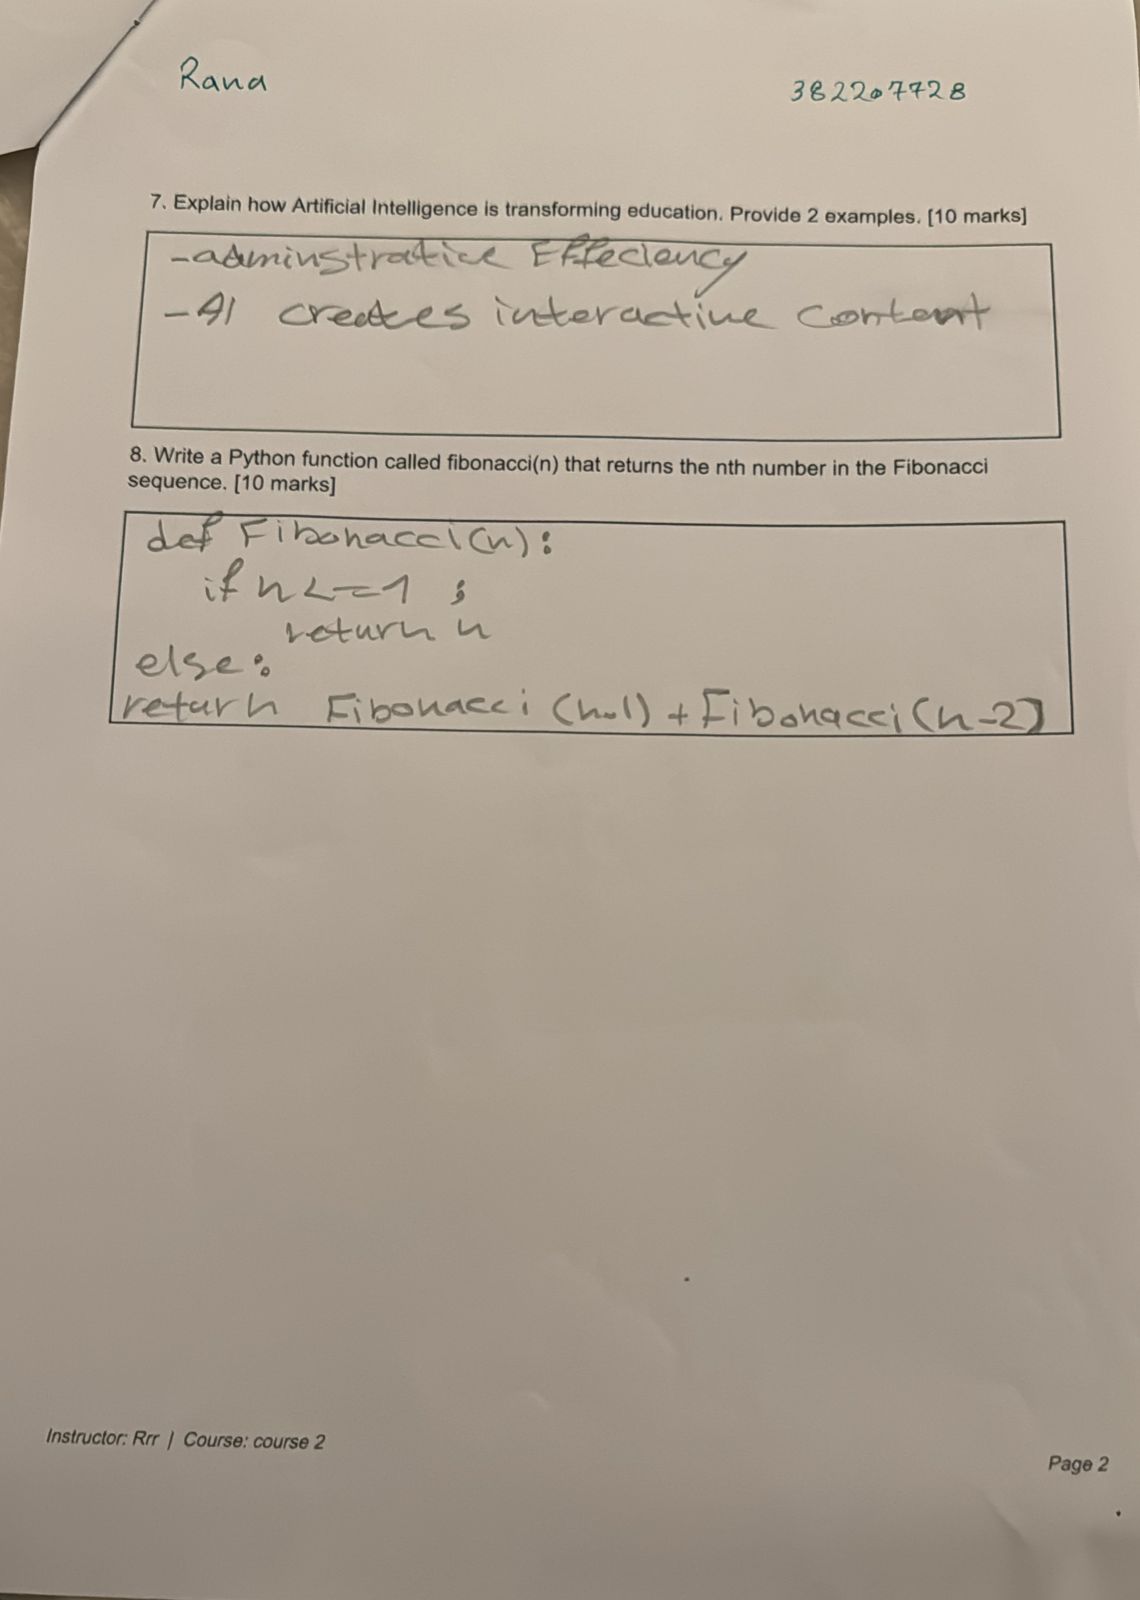 Rana
382207728
7. Explain how Artificial Intelligence is transforming education. Provide 2 examples. [10 marks]
-adminstrative Effeciency
-AI creates interactive content
8. Write a Python function called fibonacci(n) that returns the nth number in the Fibonacci
sequence. [10 marks]
def Fibonacci(n):
if n <= 1 ;
return n
else:
return Fibonacci (n-1) + Fibonacci (n-2)
Instructor: Rrr | Course: course 2
Page 2